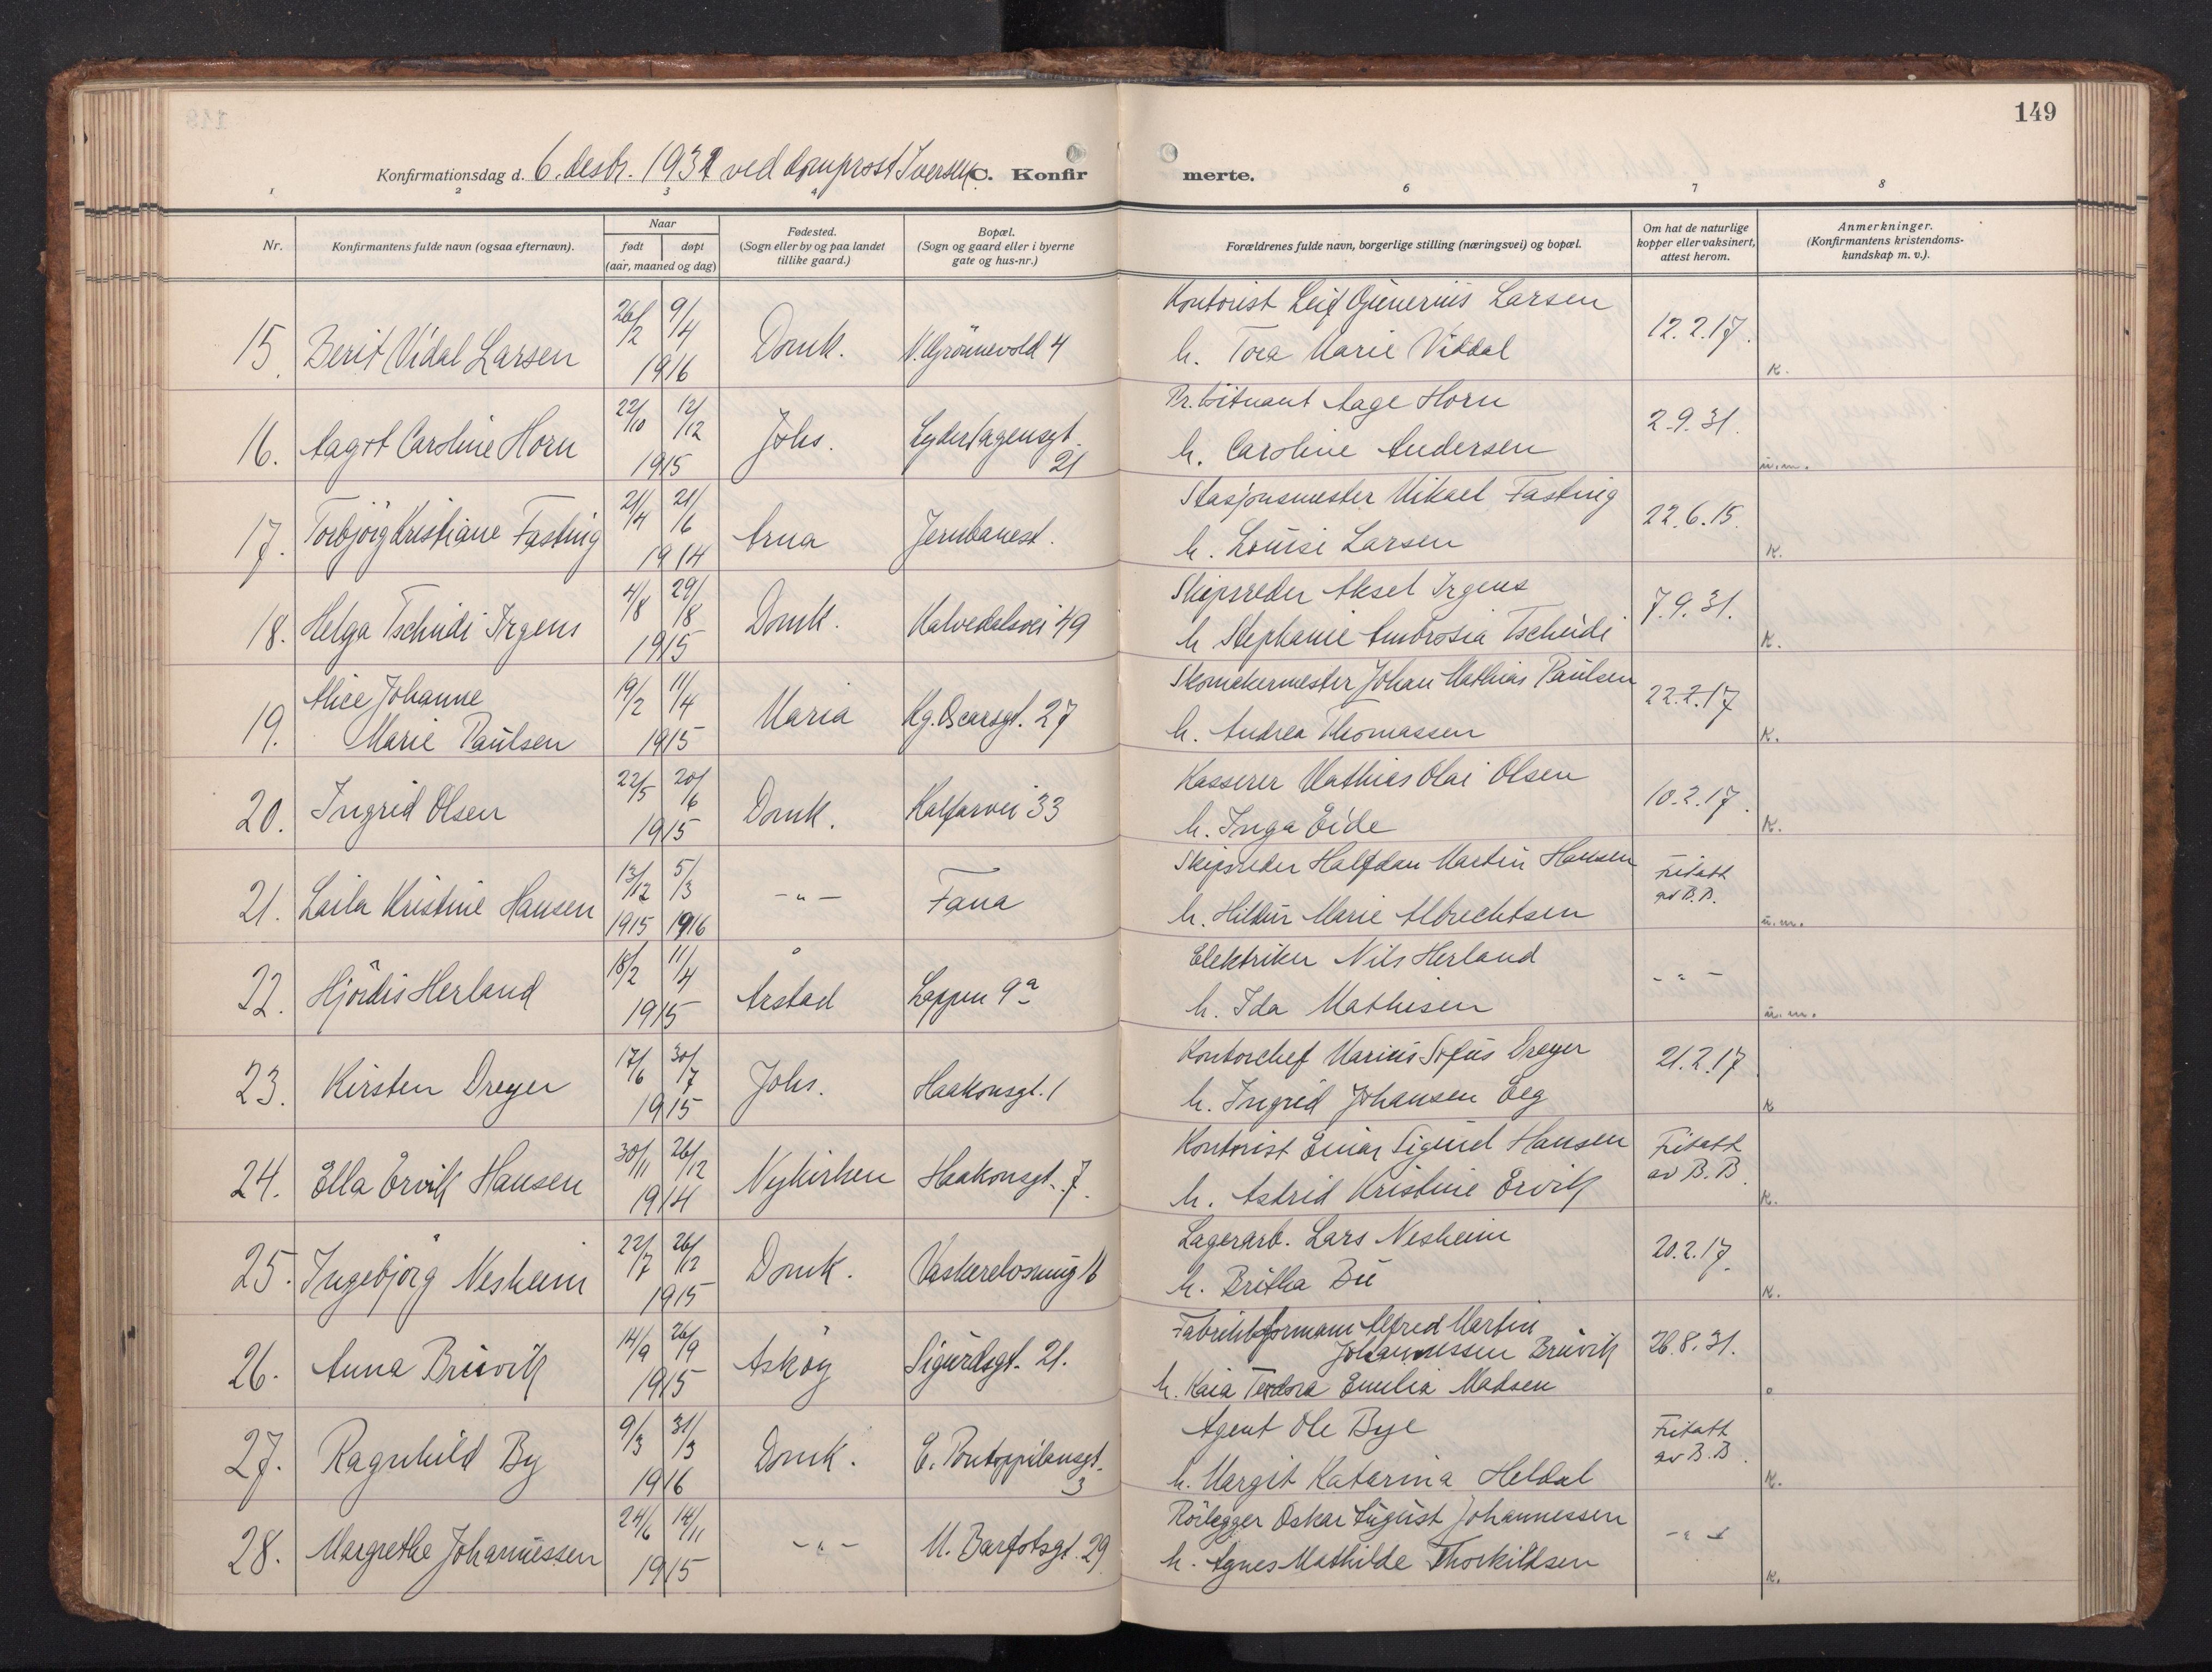 149
Konfirmationsdag d. 6. desbr. 1931 ved domprost Iversen C. Konfirmerte.
1 2 3 4 6 7 8
Nr.
Konfirmantens fulde navn (ogsaa efternavn).
Naar
født døpt
(aar, maaned og dag)
Fødested.
(Sogn eller by og paa landet
tillike gaard.)
Bopæl.
(Sogn og gaard eller i byerne
gate og hus-nr.)
Forældrenes fulde navn, borgerlige stilling (næringsvei) og bopæl.
Om hat de naturlige
kopper eller vaksinert,
attest herom.
Anmerkninger.
(Konfirmantens kristendoms-
kundskap m. v.).
15. Berit Vidal Larsen 26/2 9/4 1916 Domk. N. Grönnevold 4
Kontorist Leif Gunerius Larsen
h. Tora Marie Viddal 12.2.17. K.
16. Aagot Caroline Horn 22/10 12/12 1915 Johs. Lyder Sagensgt. 21
Aage Horn
h. Caroline Andersen 2.9.31. u.m.
17. Torbjörg Kristiane Fasting 21/4 21/6 1914 Arna Jernbanest.
Stasjonsmester Mikael Fasting
h. Louise Larsen 22.6.15. K.
18. Helga Tschudi Irgens 4/8 29/8 1915 Domk. Kalvedalsvei 49
Skipsreder Aksel Irgens
h Stephanie Ambrosia Tschudi 7.9.31. K.
19. Alice Johanne
Marie Paulsen 19/2 11/4 1915 Maria Kg. Oscarsgt. 27
Skomakermester Johan Mathias Paulsen
h. Andrea Thomassen 22.2.17 K.
20. Ingrid Olsen 22/5 20/6 1915 Domk. Kalfarvei 33
Kasserer Mathias Olai Olsen
h. Inga Eide 10.2.17. K.
21. Laila Kristine Hansen 13/12 1915 5/3 1916 -"- Fana
Skipsreder Halfdan Martin Hansen
h. Hildur Marie Albrechtsen Fritatt av B.B. u.m.
22. Hjördis Herland 18/2 11/4 1915 Årstad Lappen 9a
Elektriker Nils Herland
h. Ida Mathisen -"- u.m.
23. Kirsten Dreyer 17/6 30/7 1915 Johs. Haakonsgt. 1
Kontorchef Marius Sofus Dreyer
h. Ingrid Johansen Eeg 21.2.17. K
24. Ella Ervik Hansen 30/11 26/12 1914 Nykirken Haakonsgt. 7.
Kontorist Einar Sigurd Hansen
h. Astrid Kristine Ervik Fritatt av B.B. K.
25. Ingebjörg Nesheim 22/7 26/12 1915 Domk. 16
Lagerarb. Lars Nesheim
h. Britha Bu 20.2.17. K.
26. Anna Bruvik 14/9 26/9 1915 Asköy Sigurdsgt. 21.
Fabrikkformann Alfred Martin
Johannessen Bruvik
h. Kaia Teodora Emilia Madsen 26.8.31. o
27. Ragnhild By 9/3 31/3 1916 Domk. E. Pontoppidansgt. 3
Agent Ole Bye
h. Margit Katarina Heldal Fritatt av B.B. K.
28. Margrethe Johannessen 24/6 14/11 1915 -"- M. Barfotsgt. 29
Rörlegger Oskar August Johannessen
h. Agnes Mathilde Thorkildsen -"- K.